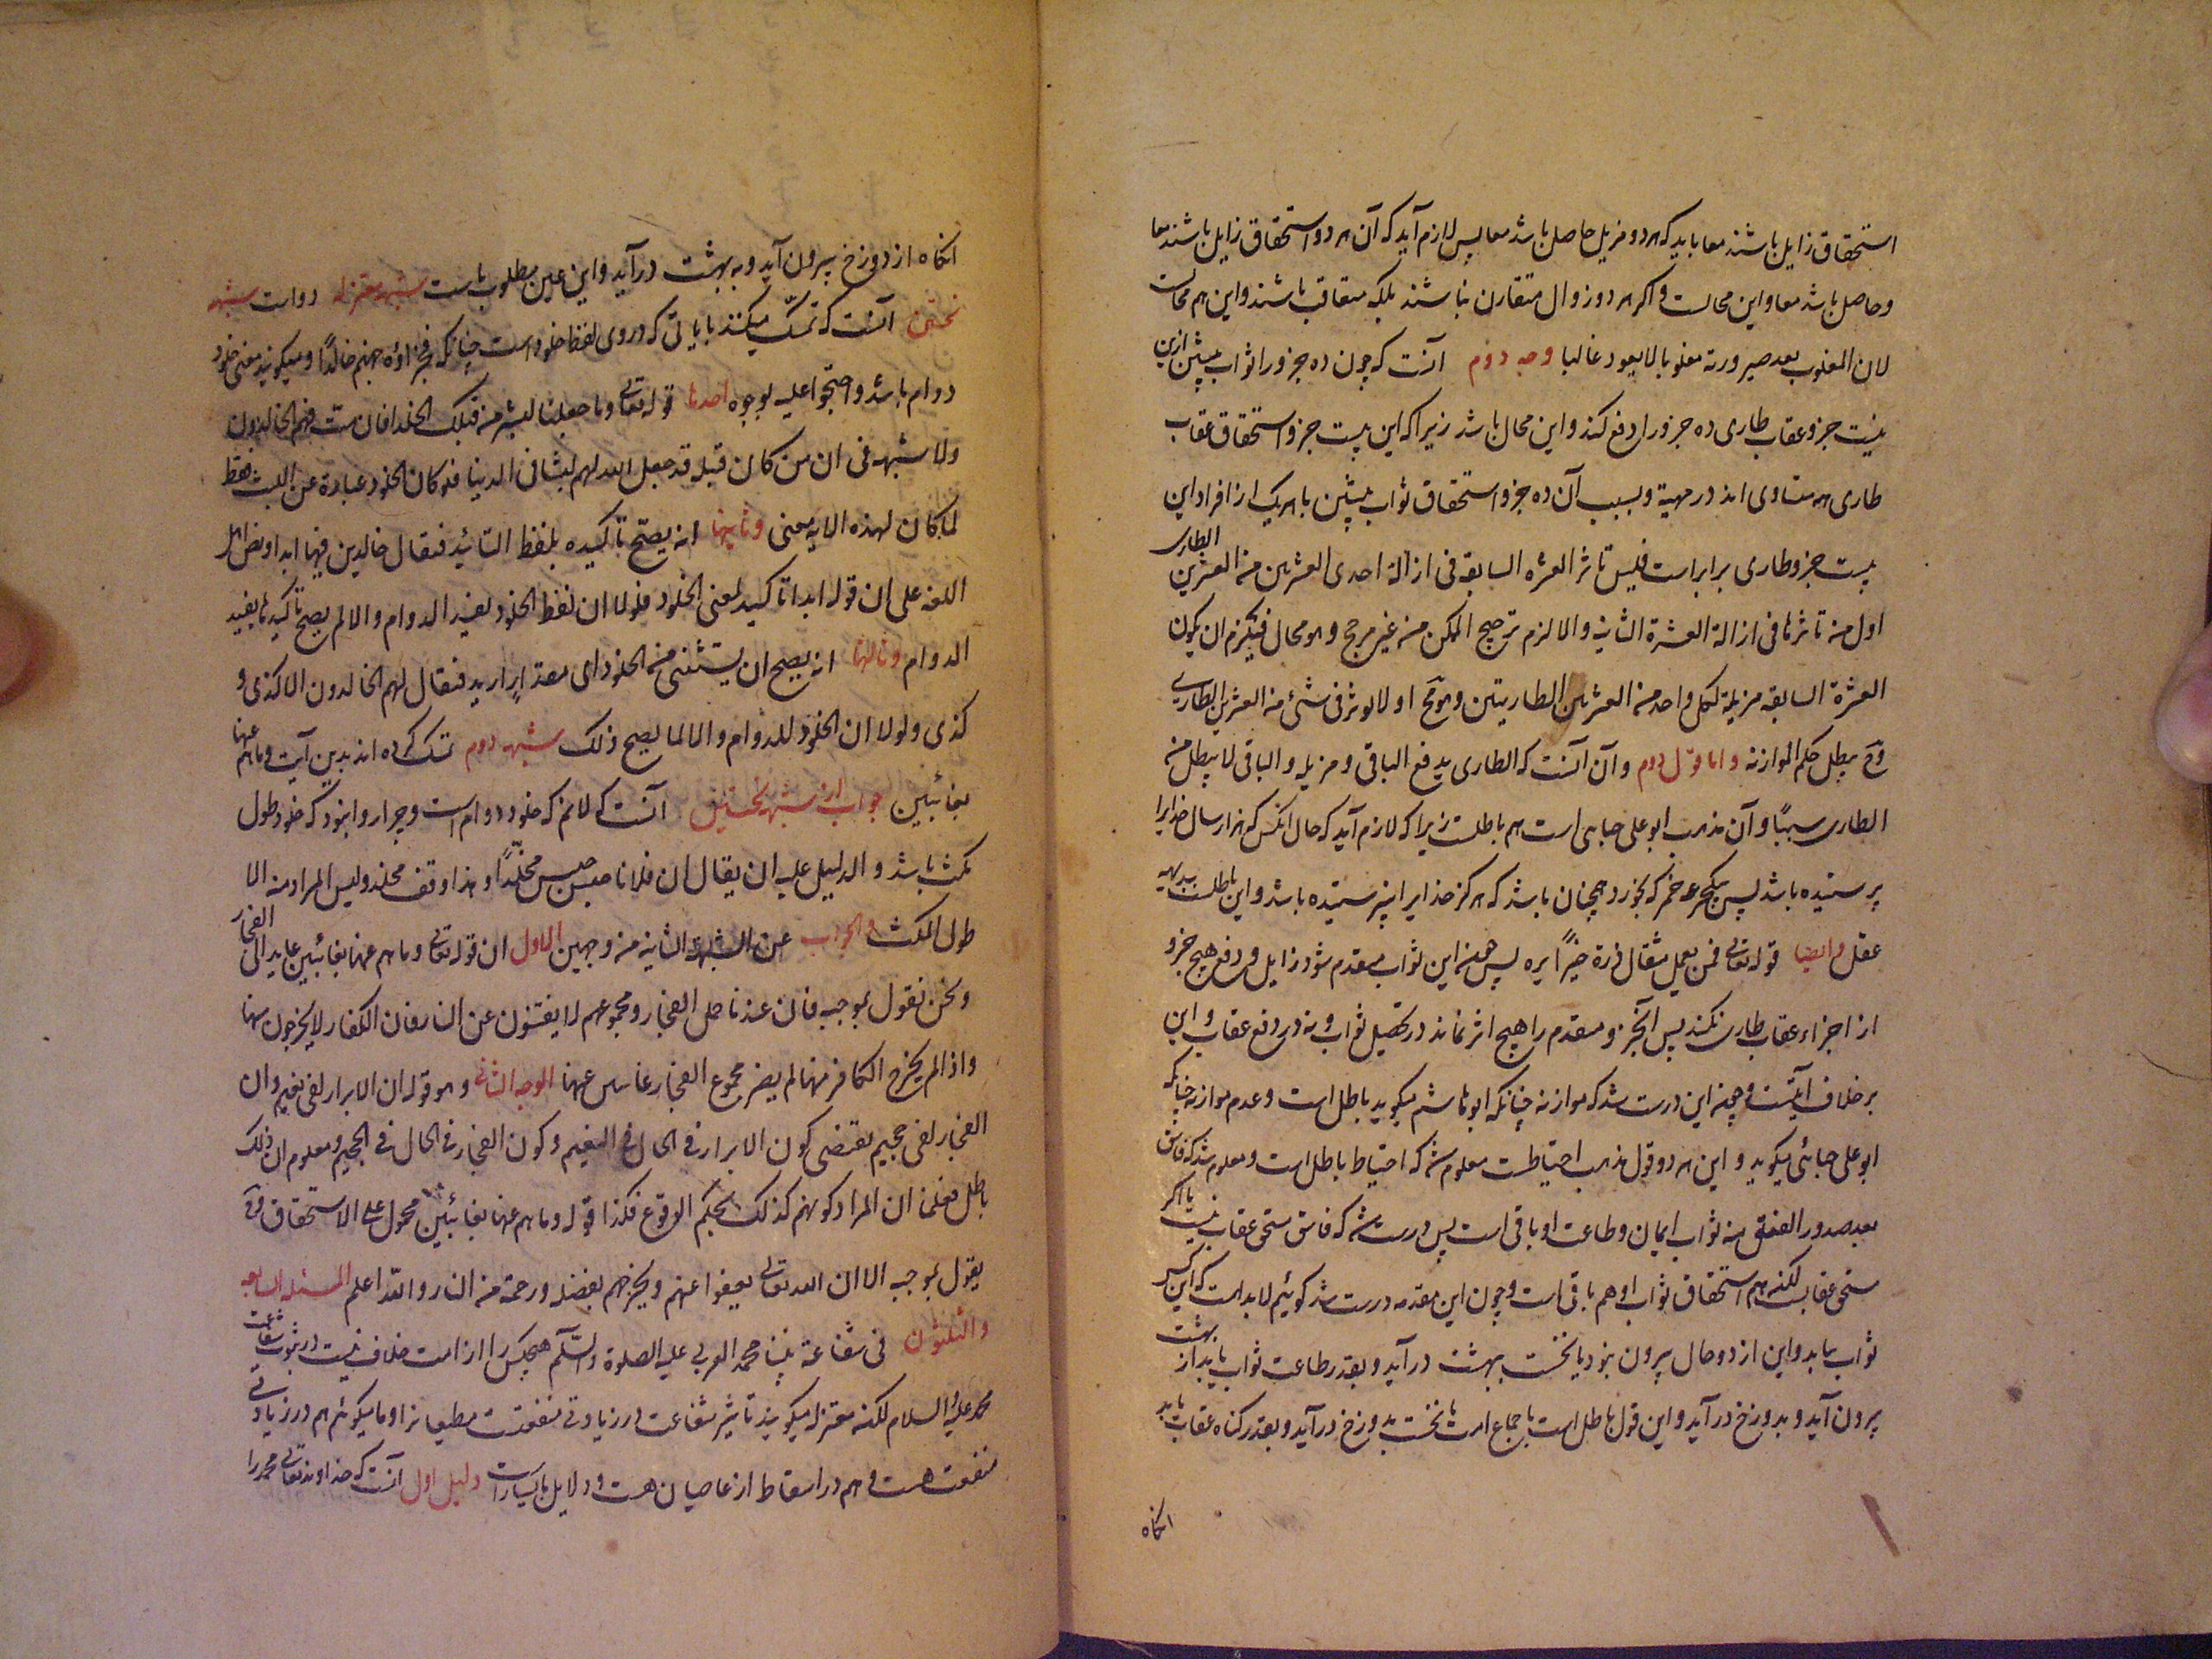 استحقاق زایل باشند معا باید که هر دو مزیل حاصل باشد معا پس لازم آید که آن هر دو استحقاق زایل باشند معا
و حاصل باشد معا و این محالست و اگر هر دو زوال متقارن نباشند بلکه متعاقب باشند و این هم محالست
لان المغلوب بعد صیرورته مغلوبا لا یعود غالبا وجه دوم آنست که چون ده جزو را ثواب پیشین ازین
بیست جزو عقاب طاری ده جزو را دفع کند و این محال باشد زیرا که این بیست جزو استحقاق عقاب
طاری همه متساوی اند در مهیة و بسبب آن ده جزو استحقاق ثواب پیشین با هر یک از افراد این
بیست جزو طاری برابر است فلیس تاثر العشره السابقه فی ازالة احدی العشرین من العشرین الطاری
اولی من تاثرها فی ازالة العشرة الثانیه و الا لزم ترجیح الممکن من غیر مرجح و هو محال فیلزم ان یکون
العشرة السابقه مزیلة لکل واحد من العشرتین الطاریتین و هو مح او لا یوثر فی شئ من العشرین الطاری
و ح یبطل حکم الموازنه و اما قول دوم و آن آنست که الطاری یدفع الباقی و مزیله و الباقی لا یبطل من
الطاری سببًا و آن مذهب ابو علی جبایی است هم باطلست زیرا که لازم آید که حال انکس که هزار سال خدایرا
پرستیده باشد پس یکجرعه خمر که بخورد همچنان باشد که هرگز خدایرا نپرستیده باشد و این باطلست ببدیهه
عقل و ایضا قوله تعالی فمن یعمل مثقال ذرة خیرًا یره پس همه این ثواب متقدم شود زایل و دفع هیچ جزو
از اجزاء عقاب طاری نکند پس آنجزو متقدم را هیچ اثر نماند در تحصیل ثواب و نه در دفع عقاب و این
بر خلاف آیتست و چون این درست شد که موازنه چنانکه ابو هاشم میگوید باطل است و عدم موازنه چنانکه
ابو علی جبائی میگوید و این هر دو قول مذهب احتیاطست معلوم شد که احتیاط باطل است و معلوم شد که فاسق
بعد صدور الفسق منه ثواب ایمان و طاعت او باقی است پس درست شد که فاسق مستحق عقاب نیست یا اگر
مستحق عقابست لکنه هم استحقاق ثواب او هم باقی است و چون این مقدمه درست شد گوئیم لابد است که این کس
ثواب بیابد و این از دو حال بیرون نبود یا نخست ببهشت درآید و بقدر طاعت ثواب یابد از بهشت
بیرون آید و بدوزخ درآید و این قول باطل است باجماع امت یا نخست بدوزخ درآید و بقدر گناه عقاب یابد
انکاه
انکاه از دوزخ بیرون آید و به بهشت درآید و این عین مطلوب ماست شبهه معتزله دو است شبهه
نخستین آنست که تمسک میکنند بایاتی که در وی لفظ خلود است چنانکه فجزاؤه جهنم خالدًا و میگویند معنی خلود
دوام باشد و احتجوا علیه بوجوه احدها قوله تعالی و ما جعلنا لبشر من قبلک الخلد افان مت فهم الخالدون
و لا شبهه فی ان من کان قبله قد جعل الله لهم لبثا فی الدنیا فلو کان الخلود عبارة عن اللبث فقط
لما کان لهذه الایه معنی و ثانیها انه یصح تاکیده بلفظ التائید فیقال خالدین فیها ابدا و نص اهل
اللغه علی ان قوله ابدا تاکید لمعنی الخلود فلولا ان لفظ الخلود یفید الدوام و الا لم یصح تاکیده بما یفید
الدوام و ثالثها انه یصح ان یستثنی من الخلود ای مقدار ارید فیقال لهم الخالدون الا کذی و
کذی و لولا ان الخلود للدوام و الا لما یصح ذلک شبهه دوم تمسک کرده اند بدین آیت و ما هم عنها
بغائبین جواب از شبهه نخستین آنست که لا نم که خلود دوام است و چرا روا نبود که خلود طول
مکث باشد و الدلیل علیه ان یقال ان فلانا حبس حبس مخلّدًا و هذا وقف مخلد و لیس المراد منه الا
طول المکث و الجواب عن الشبهة الثانیه من وجهین الاول ان قوله تعالی و ما هم عنها بغائبین عاید الی الفجار
و نحن نقول بموجبه فان عندنا کل الفجار و مجموعهم لا یغیبون عن النار فان الکفار لا یخرجون منها
و اذا لم یخرج الکافر منها لم یصر مجموع الفجار غائبین عنها الوجه الثانی و هو قوله ان الابرار لفی نعیم و ان
الفجار لفی جحیم یقتضی کون الابرار فی الحال فی النعیم و کون الفجار فی الحال فی الجحیم و معلوم ان ذلک
باطل فعلمنا ان المراد کونهم کذلک بحکم الوقوع فکذا قوله و ما هم عنها بغائبین محمول علی الاستحقاق
یقول بموجبه الا ان الله تعالی یعفوا عنهم و یخرجهم بفضله و رحمته من النار و الله اعلم المسئله السابعه
و الثلثون فی شفاعة نبینا محمد العربی علیه الصلوة و السّلم هیچکس را از امت خلاف نیست در ثبوت شفاعت
محمد علیه السلام لکنه معتزله میگویند تاثیر شفاعت در زیادتی منفعتت مطیعانرا و ما میگوئیم هم در زیادتی
منفعت هست و هم در اسقاط از عاصیان هست و دلایل ما بسیار است دلیل اول آنست که خداوند تعالی محمد را